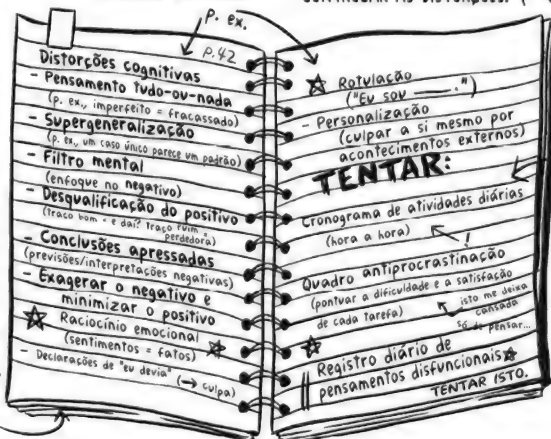 p. ex.
p.42
Distorções cognitivas
- Pensamento tudo-ou-nada
(p. ex., imperfeito = fracassado)
- Supergeneralização
(p. ex., um caso único parece um padrão)
- Filtro mental
(enfoque no negativo)
- Desqualificação do positivo
(traço bom = e daí? traço ruim = perdedora)
- Conclusões apressadas
(previsões/interpretações negativas)
- Exagerar o negativo e
minimizar o positivo
Raciocínio emocional
(sentimentos = fatos)
- Declarações de "eu devia" (→ culpa)
Rotulação
("Eu sou ____.")
- Personalização
(culpar a si mesmo por
acontecimentos externos)
TENTAR:
Cronograma de atividades diárias
(hora a hora)
!
Quadro antiprocrastinação
(pontuar a dificuldade e a satisfação
de cada tarefa)
isto me deixa
cansada
só de pensar...
Registro diário de
pensamentos disfuncionais
TENTAR ISTO.